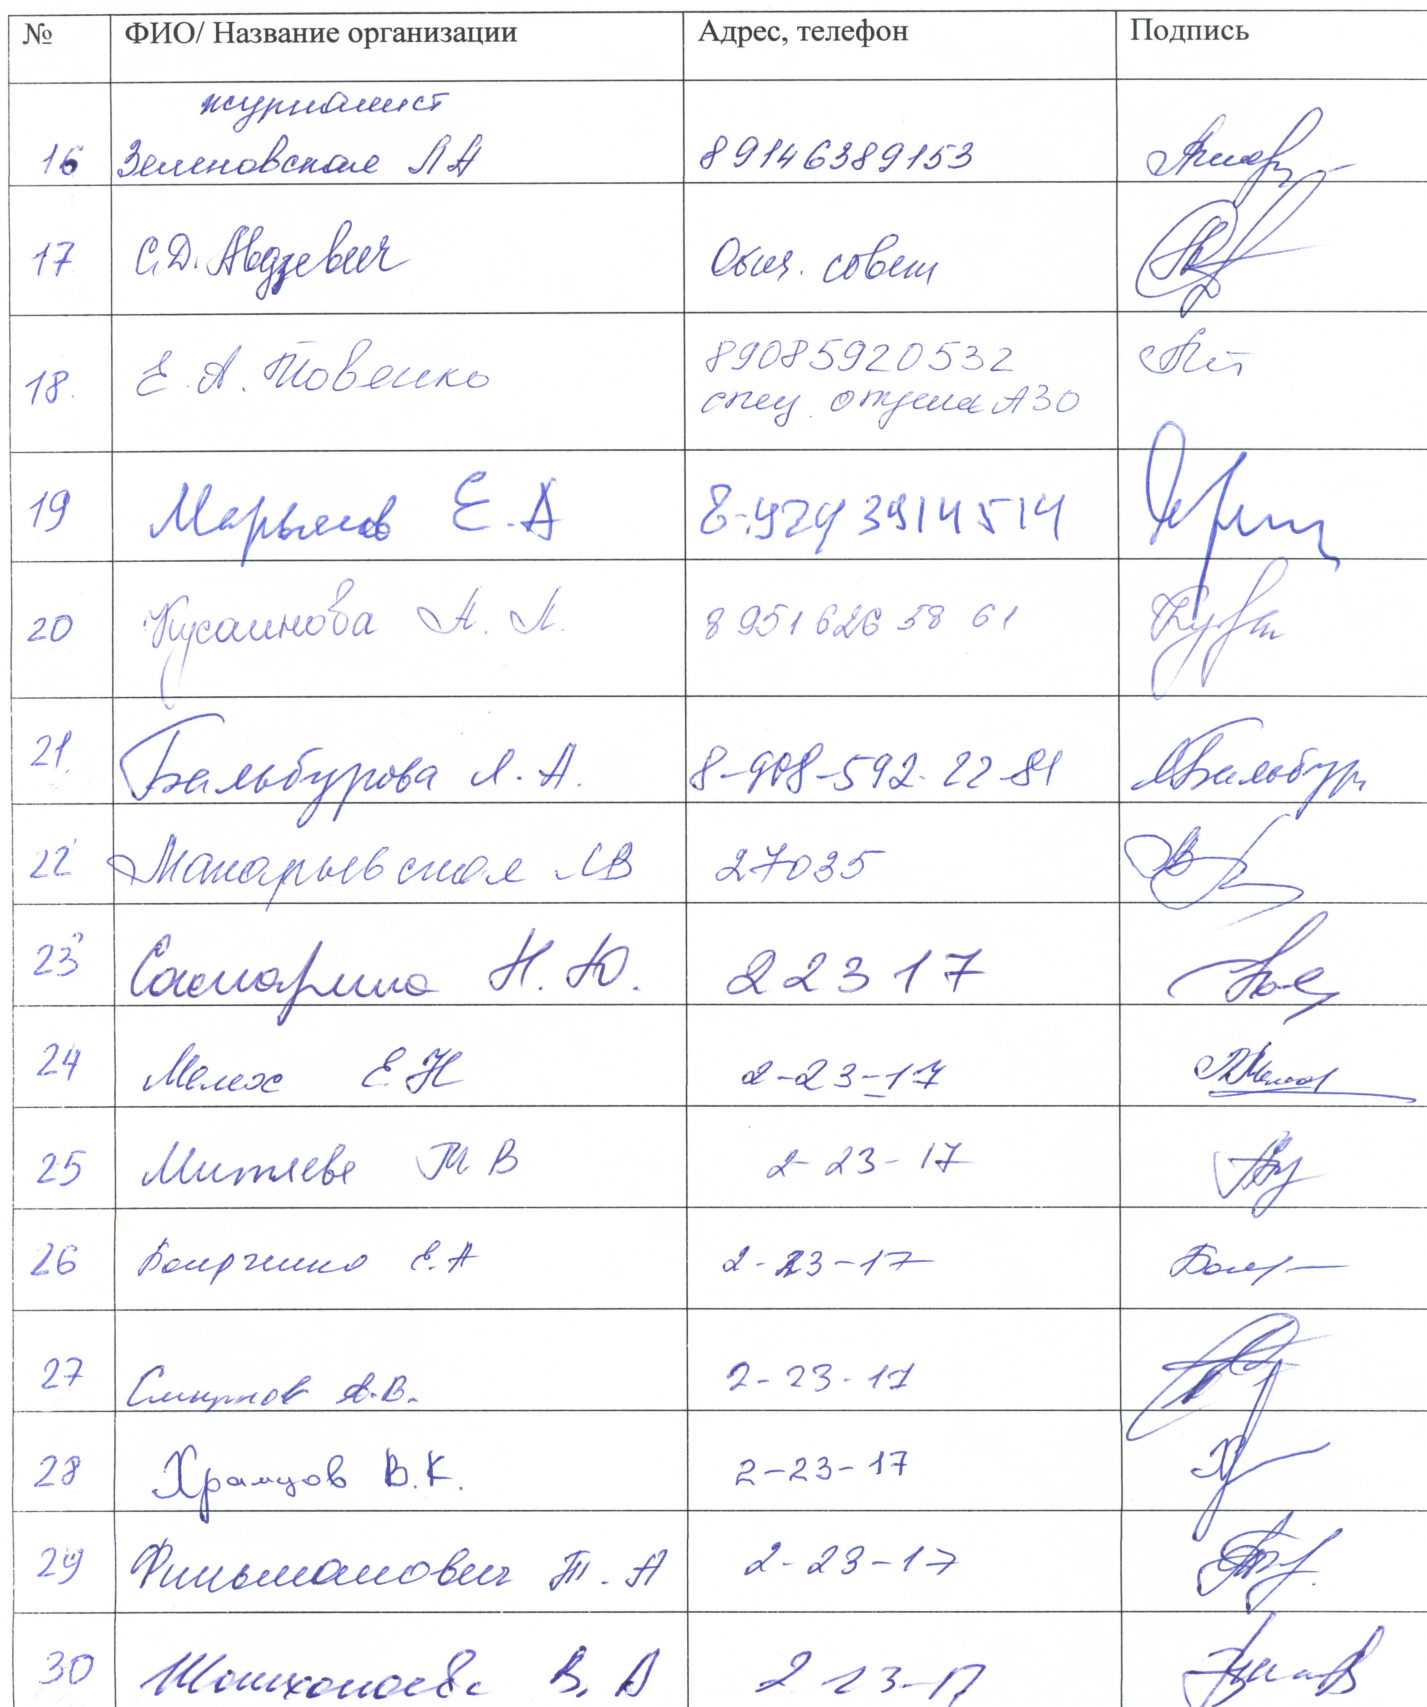 № ФИО/ Название организации Адрес, телефон Подпись
журналист
16 Зеленовская ЛА 89146389153
17 С.Д. Авдзевич Общ. совет
18. Е.А. Товенко 89085920532
спец. отдела АЗО
19 Марьясов Е.А 8-9243914514
20 Кусаинова А. А. 8 951 626 58 61
21. Бальбурова Л.А. 8-908-592-22-81
22 Макарьевская ЛВ 27035
23 Самарина Н.Ю. 22317
24 Мелех Е.Н 2-23-17
25 Митяева ТВ 2-23-17
26 Боярченко Е.А 2-23-17
27 Смирнов А.В. 2-23-17
28 Храмцов В.К. 2-23-17
29 Фильманович Т.А 2-23-17
30 В.А 2 23-17